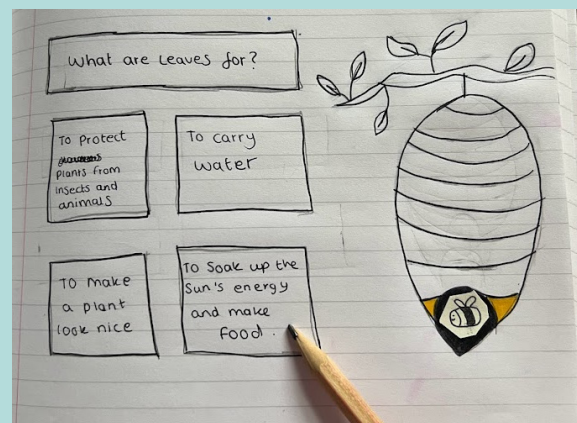 What are Leaves for?
To Protect
plants from
insects and
animals
To carry
water
To make
a plant
look nice
To Soak up the
Sun's energy
and make
food.